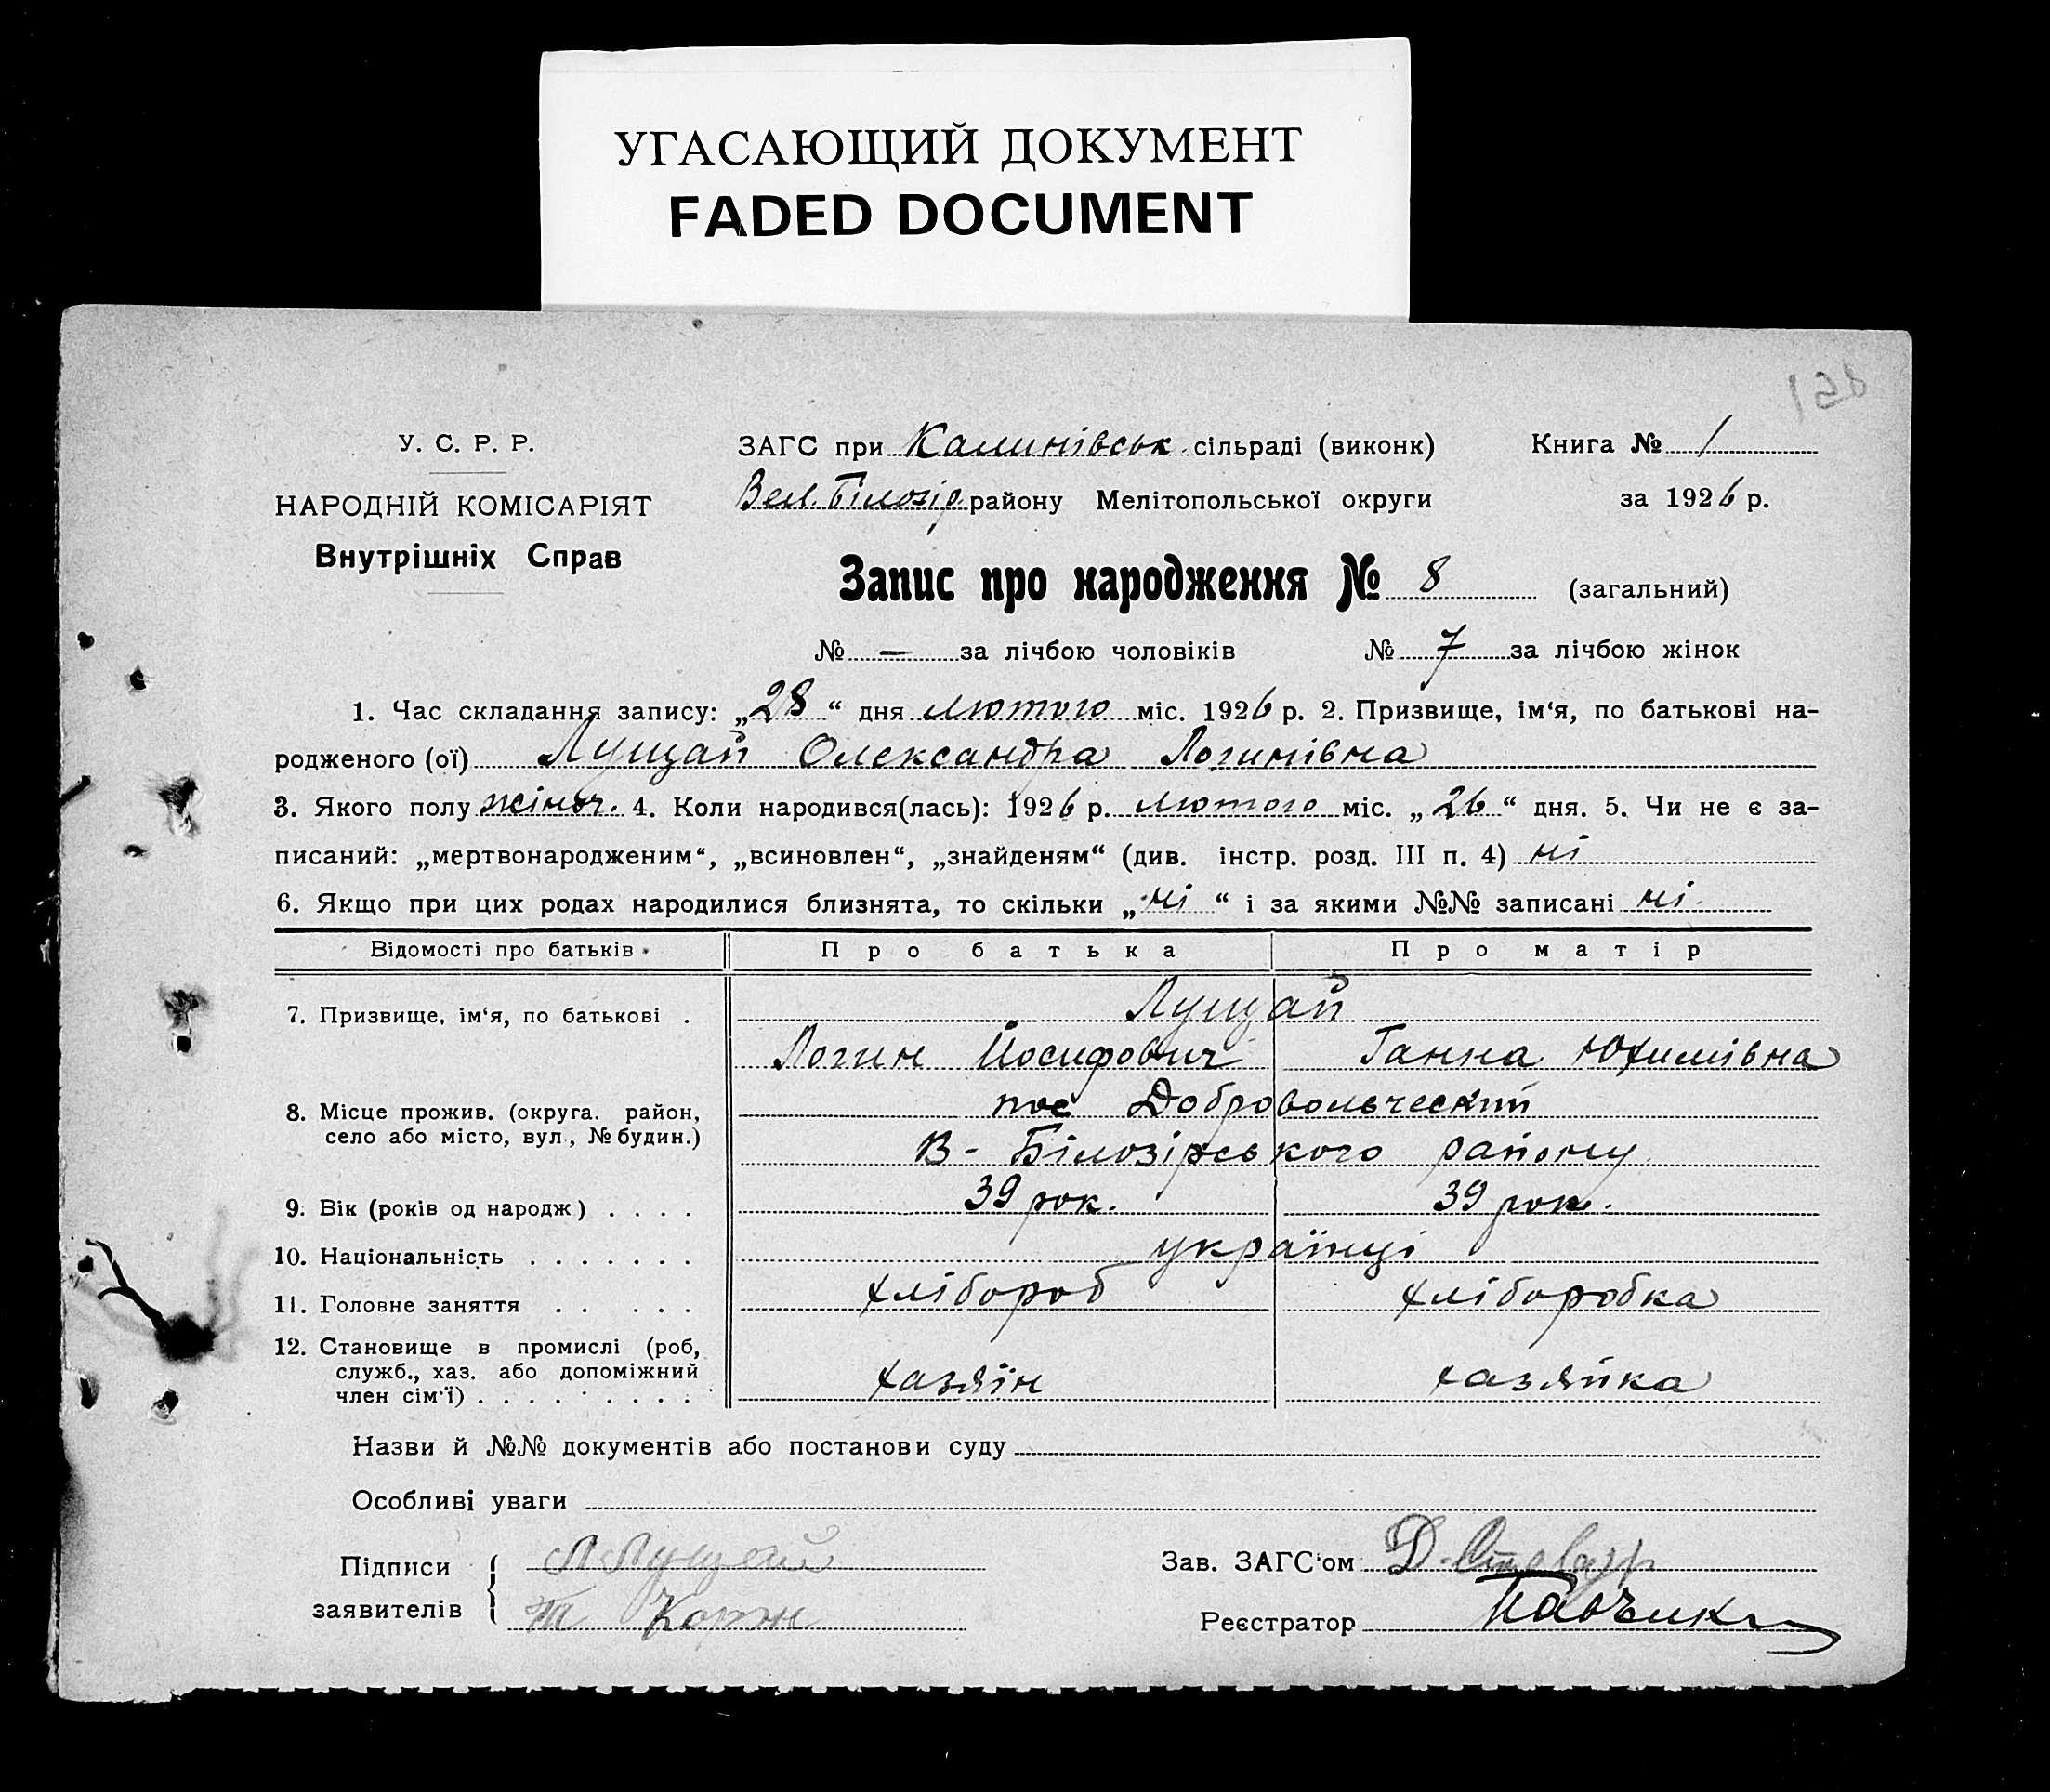 УГАСАЮЩИЙ ДОКУМЕНТ
FADED DOCUMENT
У. С. Р. Р.
НАРОДНІЙ КОМІСАРІЯТ
Внутрішніх Справ
ЗАГС при Калинівськ. сільраді (виконк)
Вел. Білозір. району Мелітопольської округи
Книга № 1
за 1926 р.
Запис про народження № 8 (загальний)
№ — за лічбою чоловіків № 7 за лічбою жінок
1. Час складання запису: „28“ дня лютого міс. 1926 р. 2. Призвище, ім‘я, по батькові на-
родженого (ої) Лущай Олександра Логинівна
3. Якого полу жіноч. 4. Коли народився(лась): 1926 р. лютого міс. „26“ дня. 5. Чи не є за-
писаний: „мертвонародженим“, „всиновлен“, „знайденям“ (див. інстр. розд. III п. 4) ні
6. Якщо при цих родах народилися близнята, то скільки „ні“ і за якими №№ записані ні.
Відомості про батьків Про батька Про матір
7. Призвище, ім‘я, по батькові . Лущай
Логин Йосифович Ганна Юхимівна
8. Місце прожив. (округа. район, пос Добровольческий
село або місто, вул., № будин.)
В- Білозірського району
9. Вік (років од народж) . . . . 39 рок. 39 рок.
10. Національність . . . . . . . українці
11. Головне заняття . . . . . хлібороб хліборобка
12. Становище в промислі (роб,
служб., хаз. або допоміжний
член сім‘ї) . . . . . . . . . хазяїн хазяйка
Назви й №№ документів або постанови суду
Особливі уваги
Підписи Л Лущай
заявителів Корж
Зав. ЗАГС‘ом Д.
Реєстратор